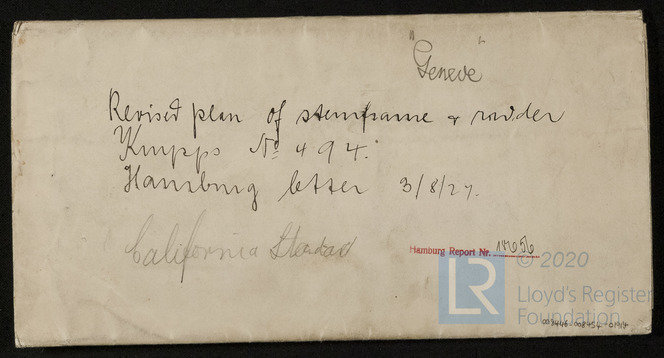 "Geneve"
Revised plan of sternframe & rudder
Krupps No 494.
Hamburg letter 3/8/27.
California Standard
Hamburg Report Nr.
LR © 2020
Lloyd's Register
Foundation